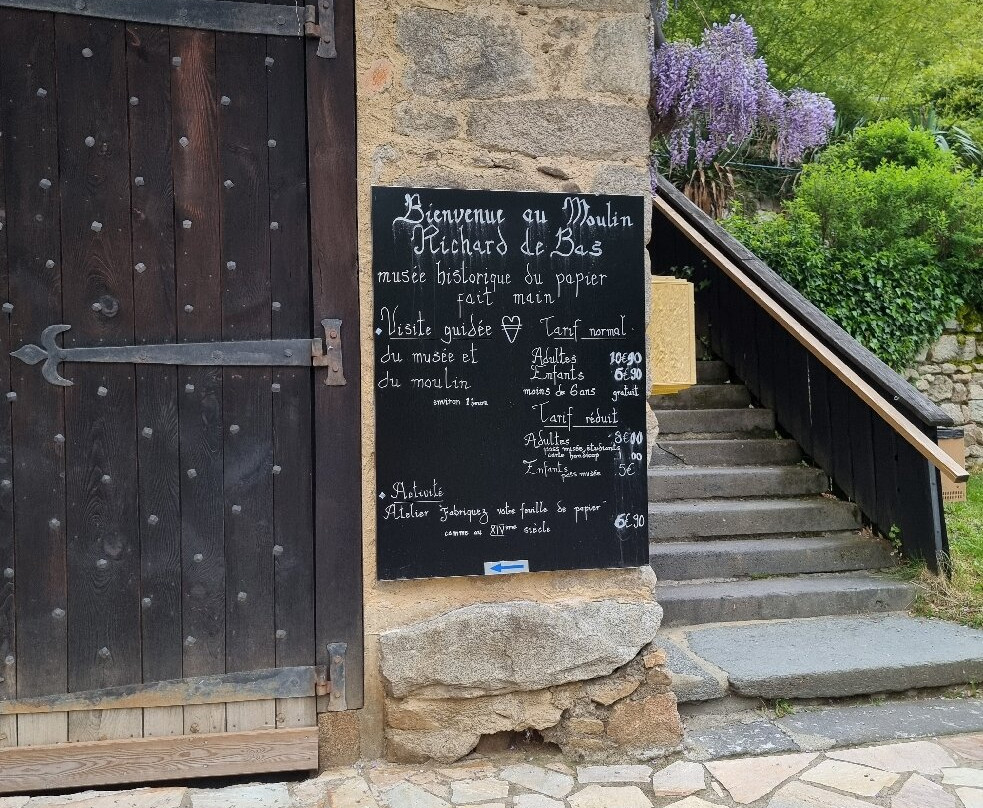 Bienvenue au Moulin
Richard de Bas
musée historique du papier
fait main
Visite guidée
du musée et
du moulin
environ 1 heure
Tarif normal
Adultes 10€90
Enfants 6€90
moins de 6 ans gratuit
Tarif réduit
Adultes 8€00
pass musée, étudiants
carte handicap
Enfants pass musée 5€
Activité
Atelier "Fabriquez votre feuille de papier"
comme au XIVème siècle 6€90